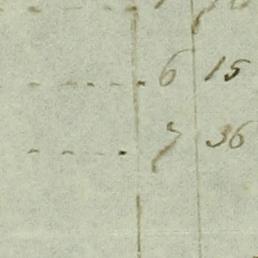 6 15
7 36